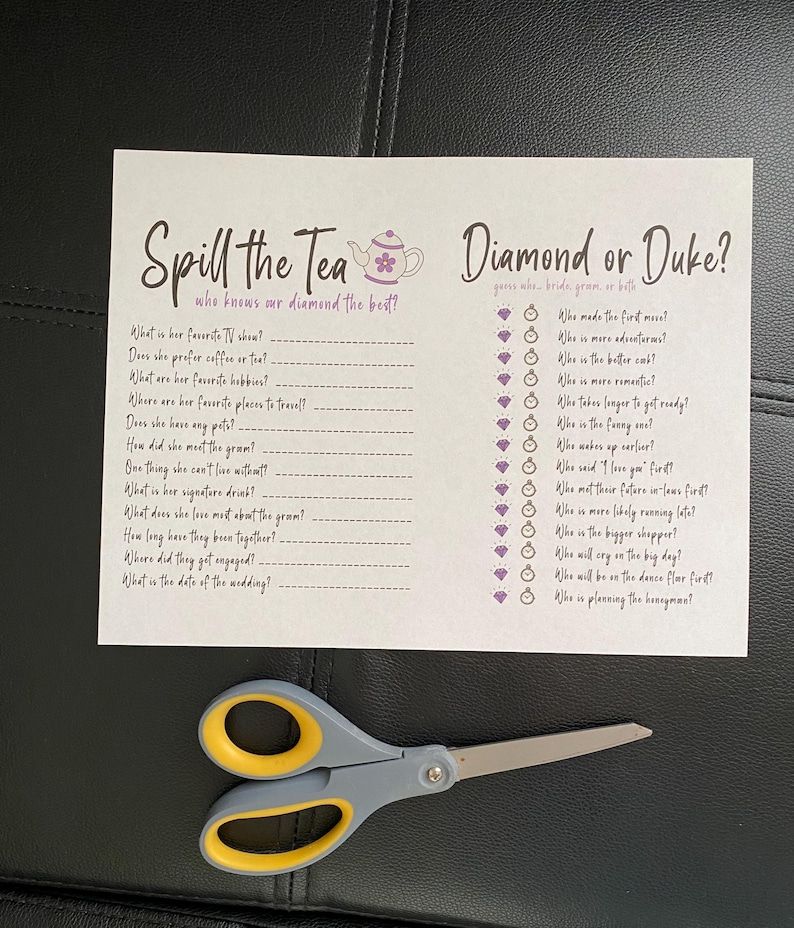 Spill the Tea
who knows our diamond the best?
What is her favorite TV show? _______________
Does she prefer coffee or tea? _______________
What are her favorite hobbies? _______________
Where are her favorite places to travel? _______________
Does she have any pets? _______________
How did she meet the groom? _______________
One thing she can't live without? _______________
What is her signature drink? _______________
What does she love most about the groom? _______________
How long have they been together? _______________
Where did they get engaged? _______________
What is the date of the wedding? _______________
Diamond or Duke?
guess who... bride, groom, or both
Who made the first move?
Who is more adventurous?
Who is the better cook?
Who is more romantic?
Who takes longer to get ready?
Who is the funny one?
Who wakes up earlier?
Who said "I love you" first?
Who met their future in-laws first?
Who is more likely running late?
Who is the bigger shopper?
Who will cry on the big day?
Who will be on the dance floor first?
Who is planning the honeymoon?